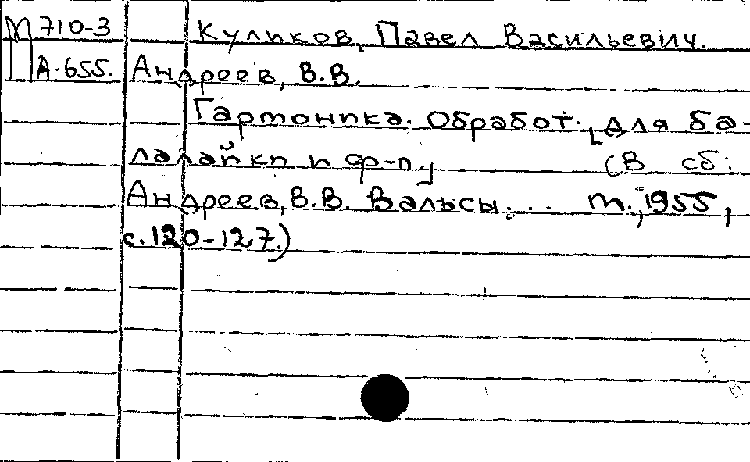 М 710-3 Куликов, Павел Васильевич.
А-655. Андреев, В.В.
Гармоника. Обработ. [для ба-
лалайки и ф-п.] (В сб:
Андреев, В.В. Вальсы... М., 1955,
с. 120-127.)